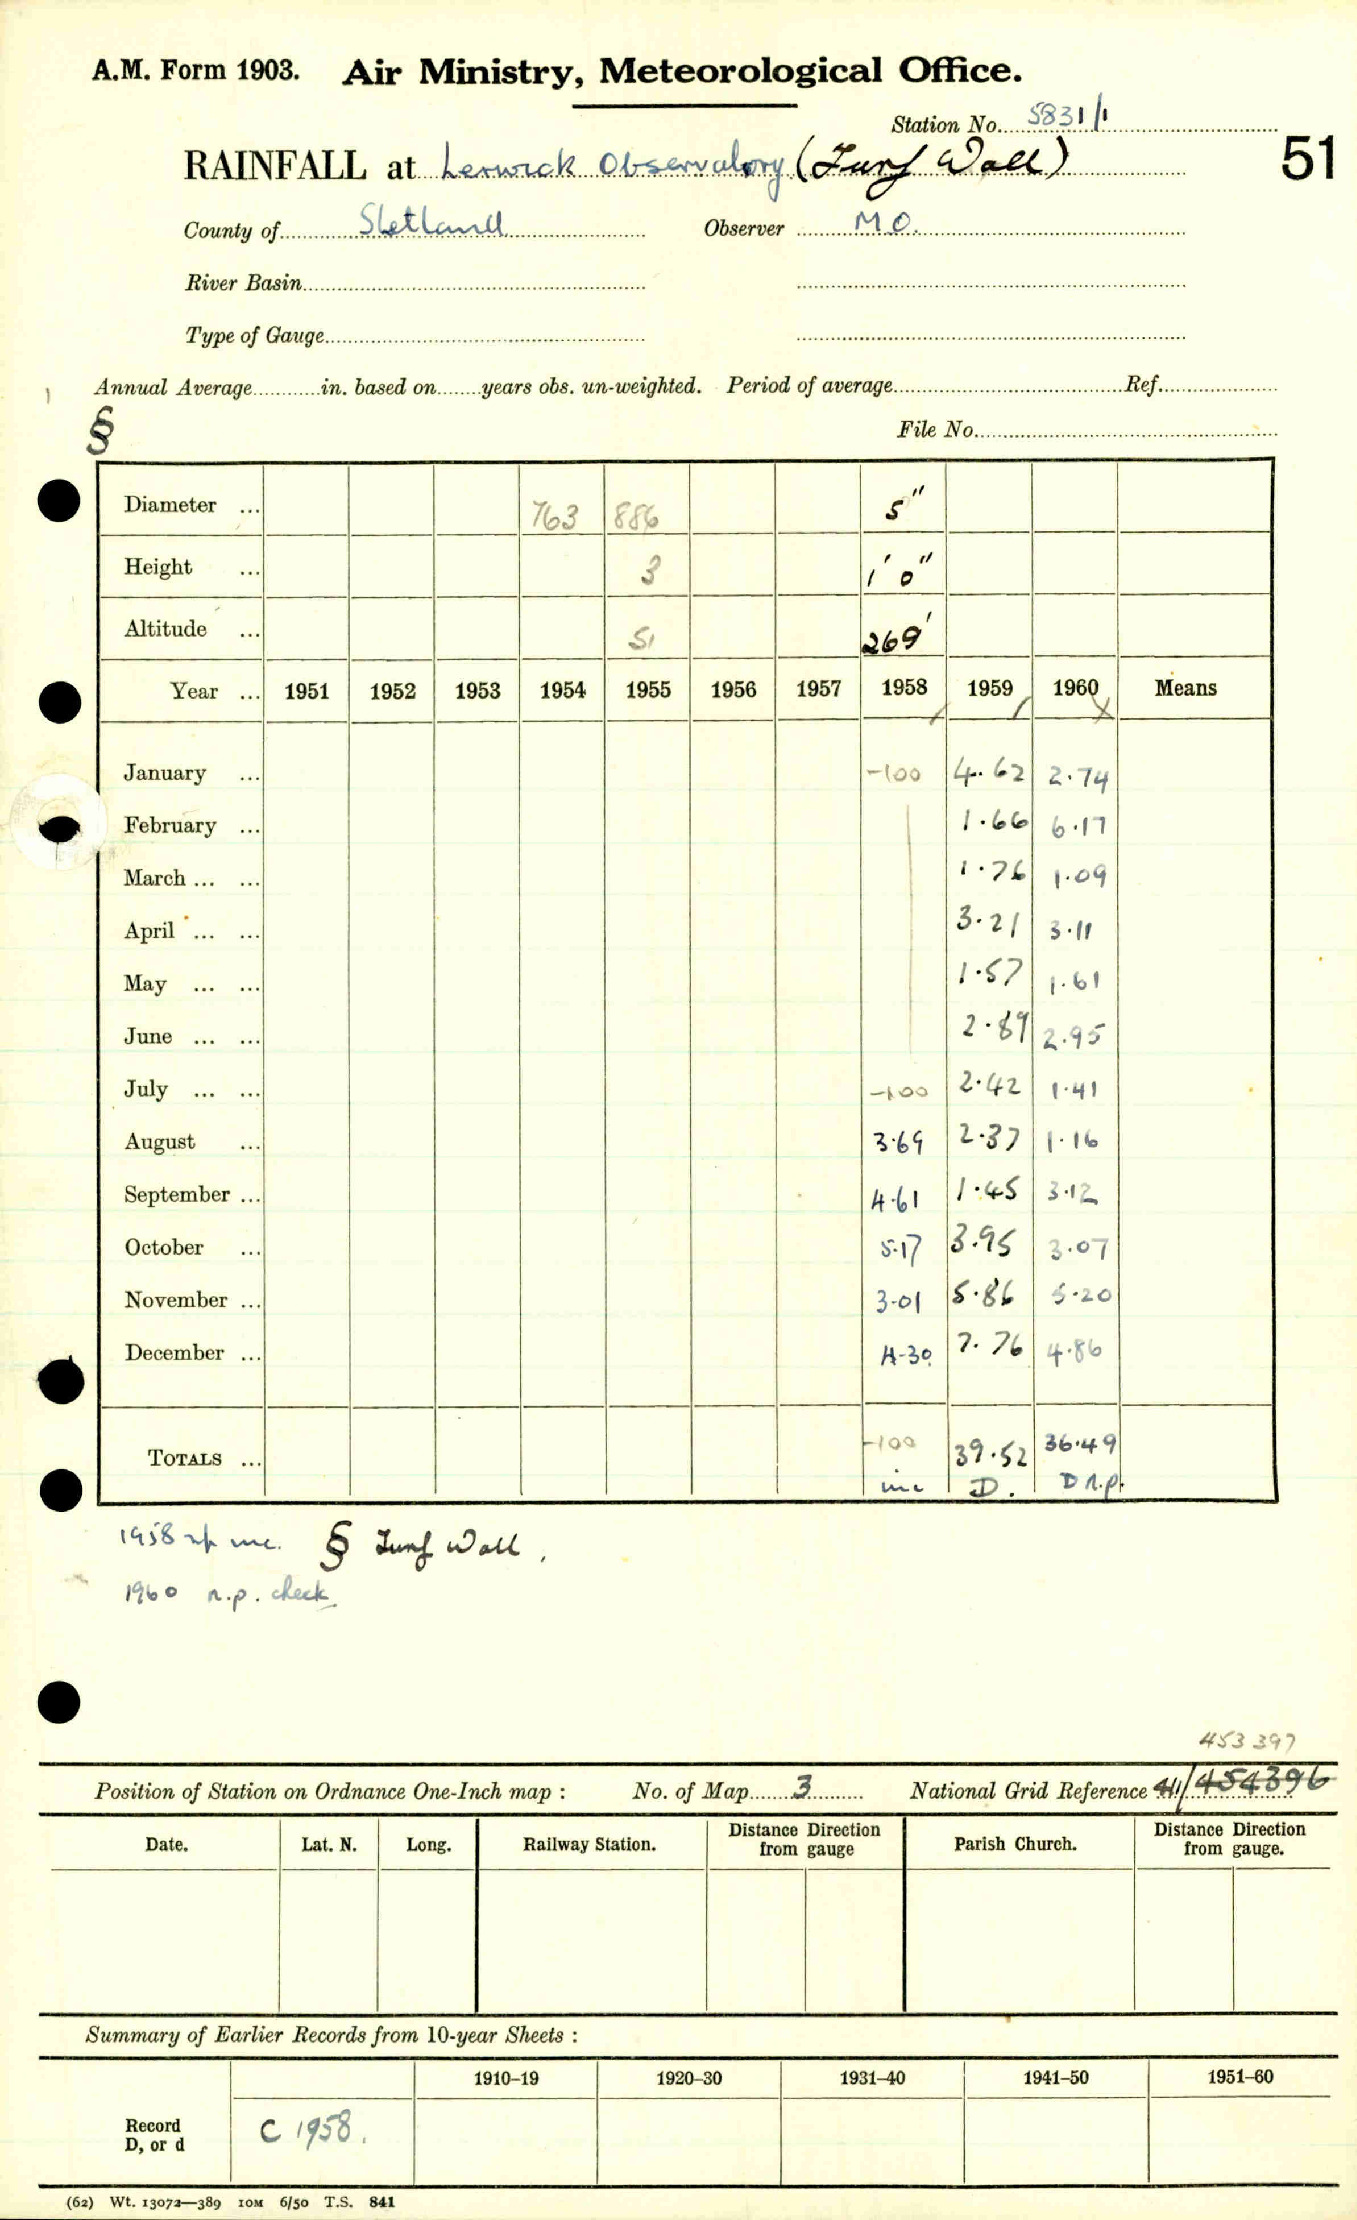 A.M. Form 1903. Air Ministry, Meteorological Office.
Station No. 5831/1
RAINFALL at Lerwick Observatory (Turf Wall)
51
County of Shetland Observer M O.
River Basin
Type of Gauge
Annual Average in. based on years obs. un-weighted. Period of average Ref.
§
File No.
Diameter ... 763 886 5"
Height ... 3 1' 0"
Altitude ... 51 269'
Year ... 1951 1952 1953 1954 1955 1956 1957 1958 1959 1960 Means
January ... -100 4.62 2.74
February ... 1.66 6.17
March ... ... 1.76 1.09
April ... ... 3.21 3.11
May ... ... 1.57 1.61
June ... ... 2.89 2.95
July ... ... -100 2.42 1.41
August ... 3.69 2.37 1.16
September ... 4.61 1.45 3.12
October ... 5.17 3.95 3.07
November ... 3.01 5.86 5.20
December ... 4.30 7.76 4.86
TOTALS ... -100 39.52 36.49
inc D. D n.p.
1958 inc. § Turf Wall.
1960 n.p. check
453 397
Position of Station on Ordnance One-Inch map : No. of Map 3 National Grid Reference 411/454396
Date. Lat. N. Long. Railway Station. Distance from Direction gauge Parish Church. Distance from Direction gauge.
Summary of Earlier Records from 10-year Sheets :
1910–19 1920–30 1931–40 1941–50 1951–60
Record D, or d C 1958.
(62) Wt. 13072—389 10M 6/50 T.S. 841